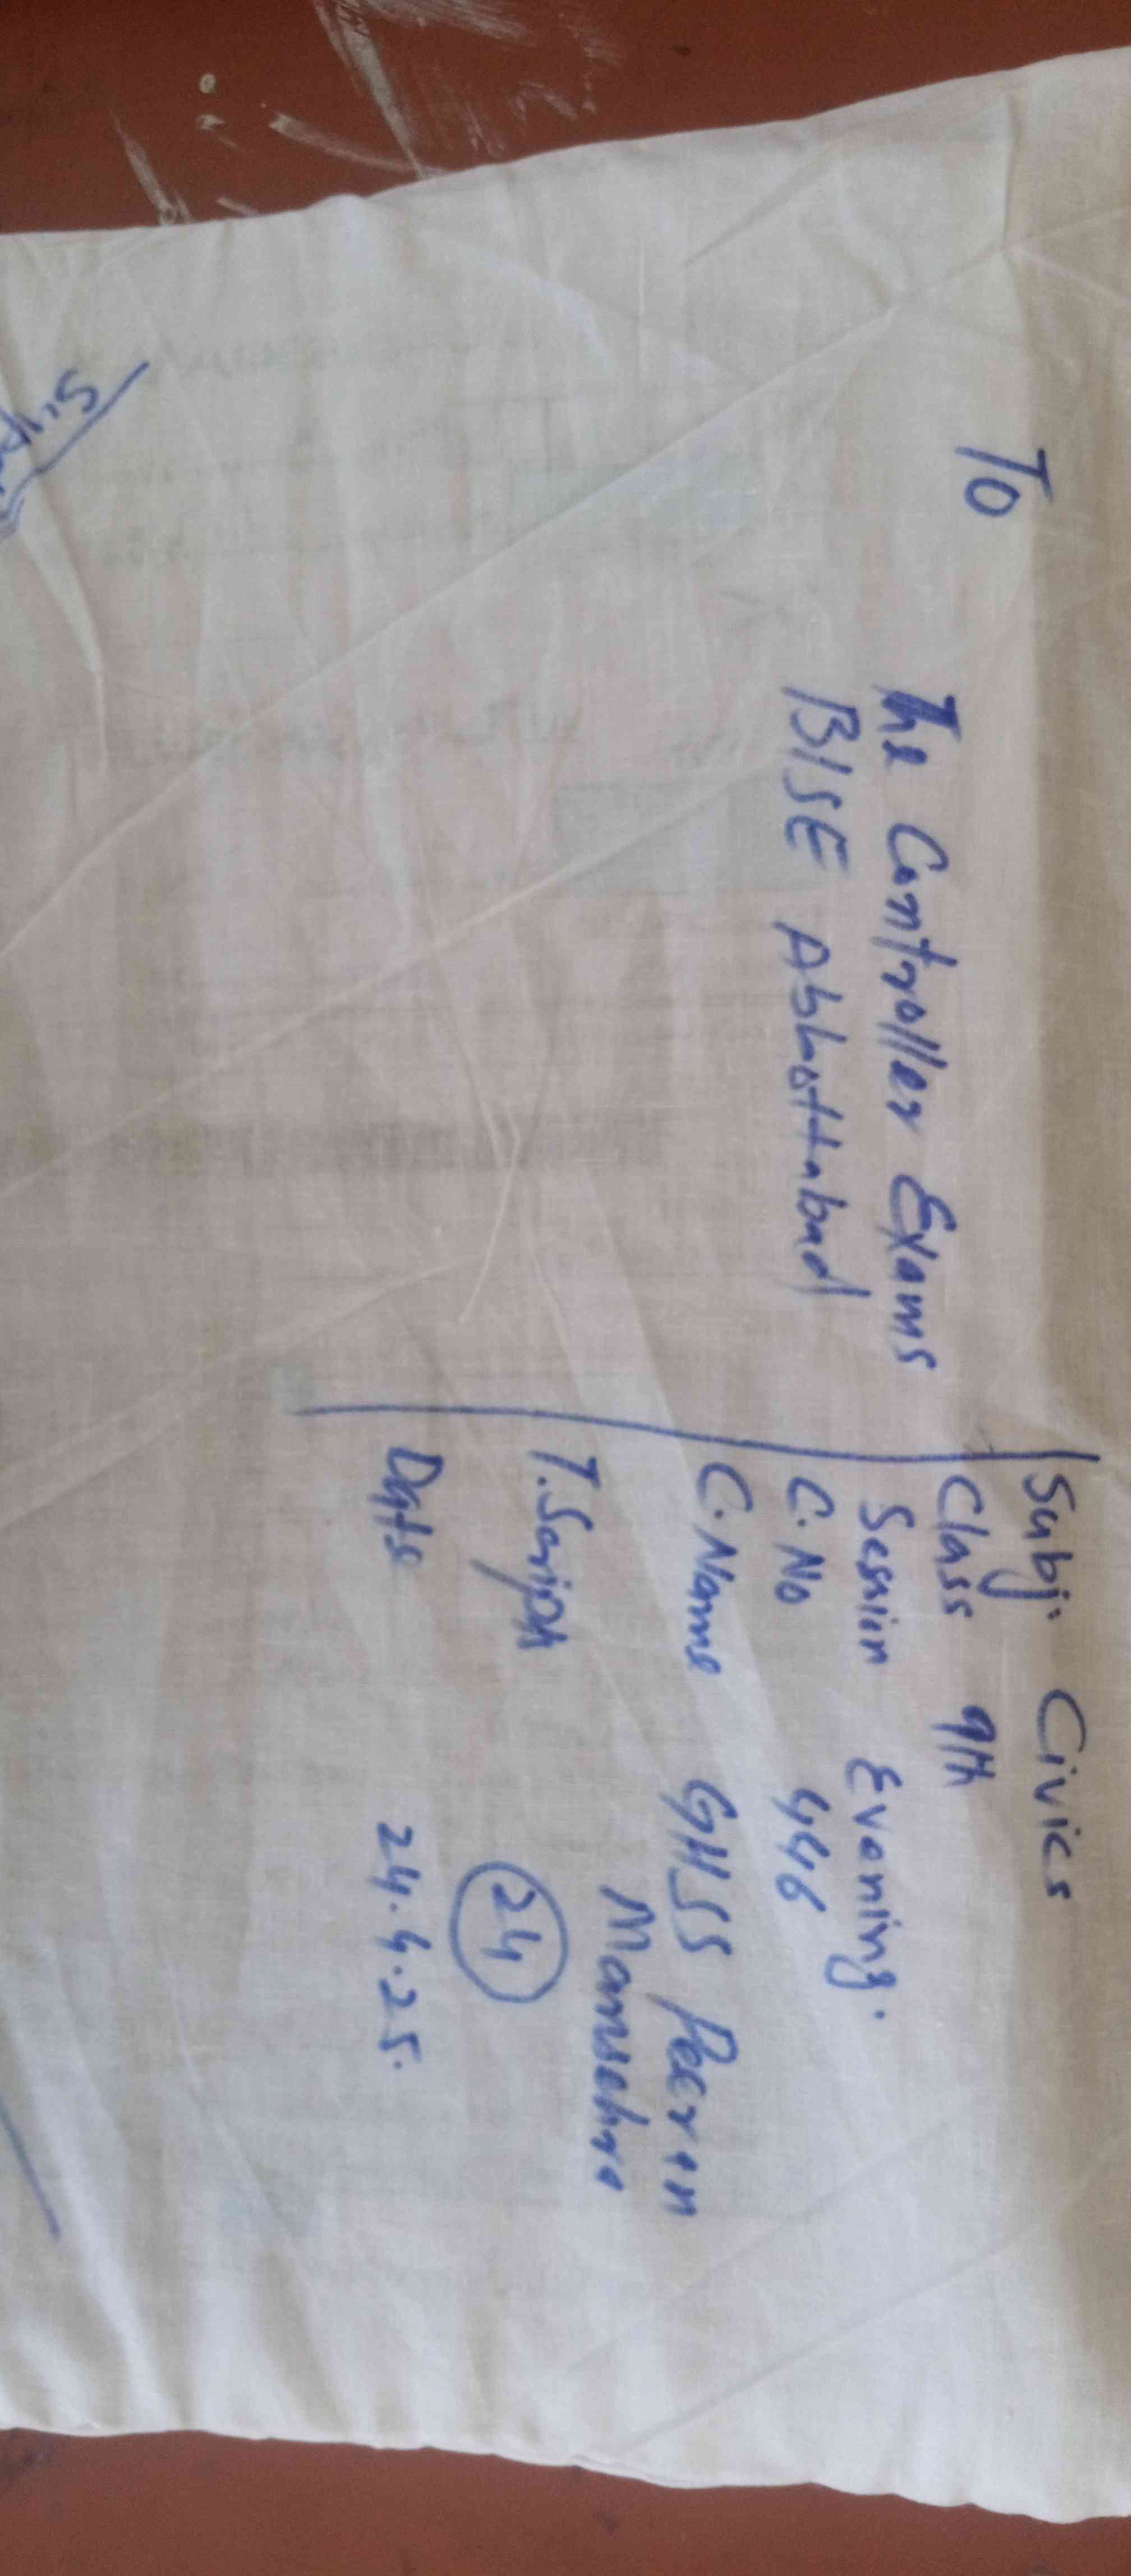 Subj: Civics
To
Class 9th
The Controller Exams
Session Evening.
BISE Abbottabad
C. No 446
C. Name GHSS Peeran
Mansehra
T. Script 24
Date 24.4.25.